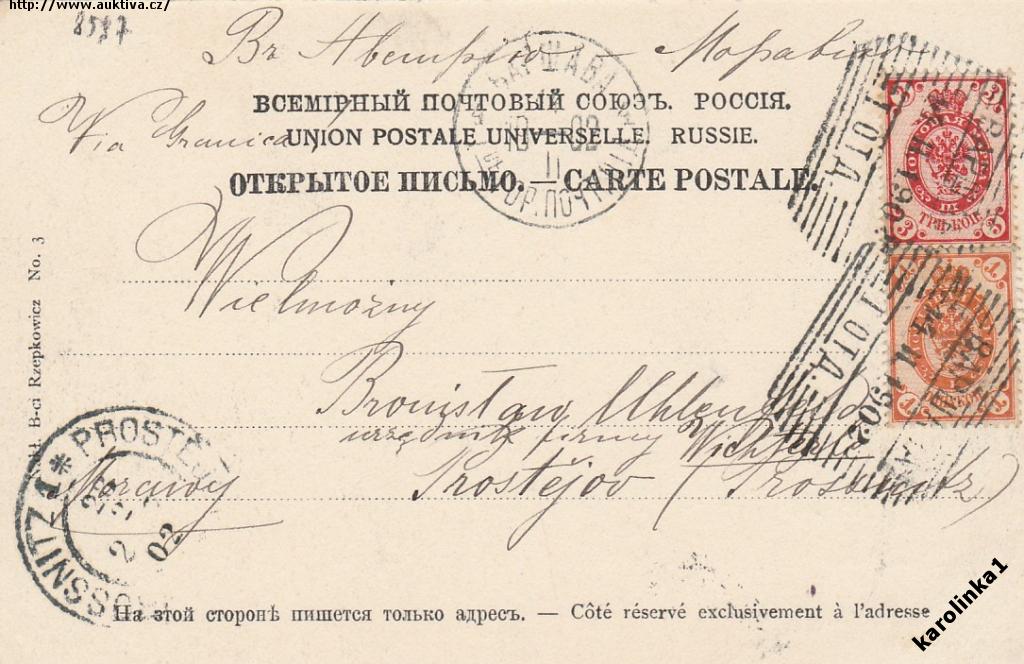 http://www.auktiva.cz/
8587
Въ Австрію — Моравія
ВАРШАВА
ВСЕМІРНЫЙ ПОЧТОВЫЙ СОЮЗЪ. РОССІЯ.
Via Granica
UNION POSTALE UNIVERSELLE. RUSSIE.
ОТКРЫТОЕ ПИСЬМО. — CARTE POSTALE.
Wielmożny
Bronisław
urzędnik firmy Wichterle
Morawy Prostějov (Prossnitz)
B-ci Rzepkowicz No. 3
1 * PROSTĚJ
2 02
На этой сторонѣ пишется только адресъ. — Côté réservé exclusivement à l'adresse
karolinka1